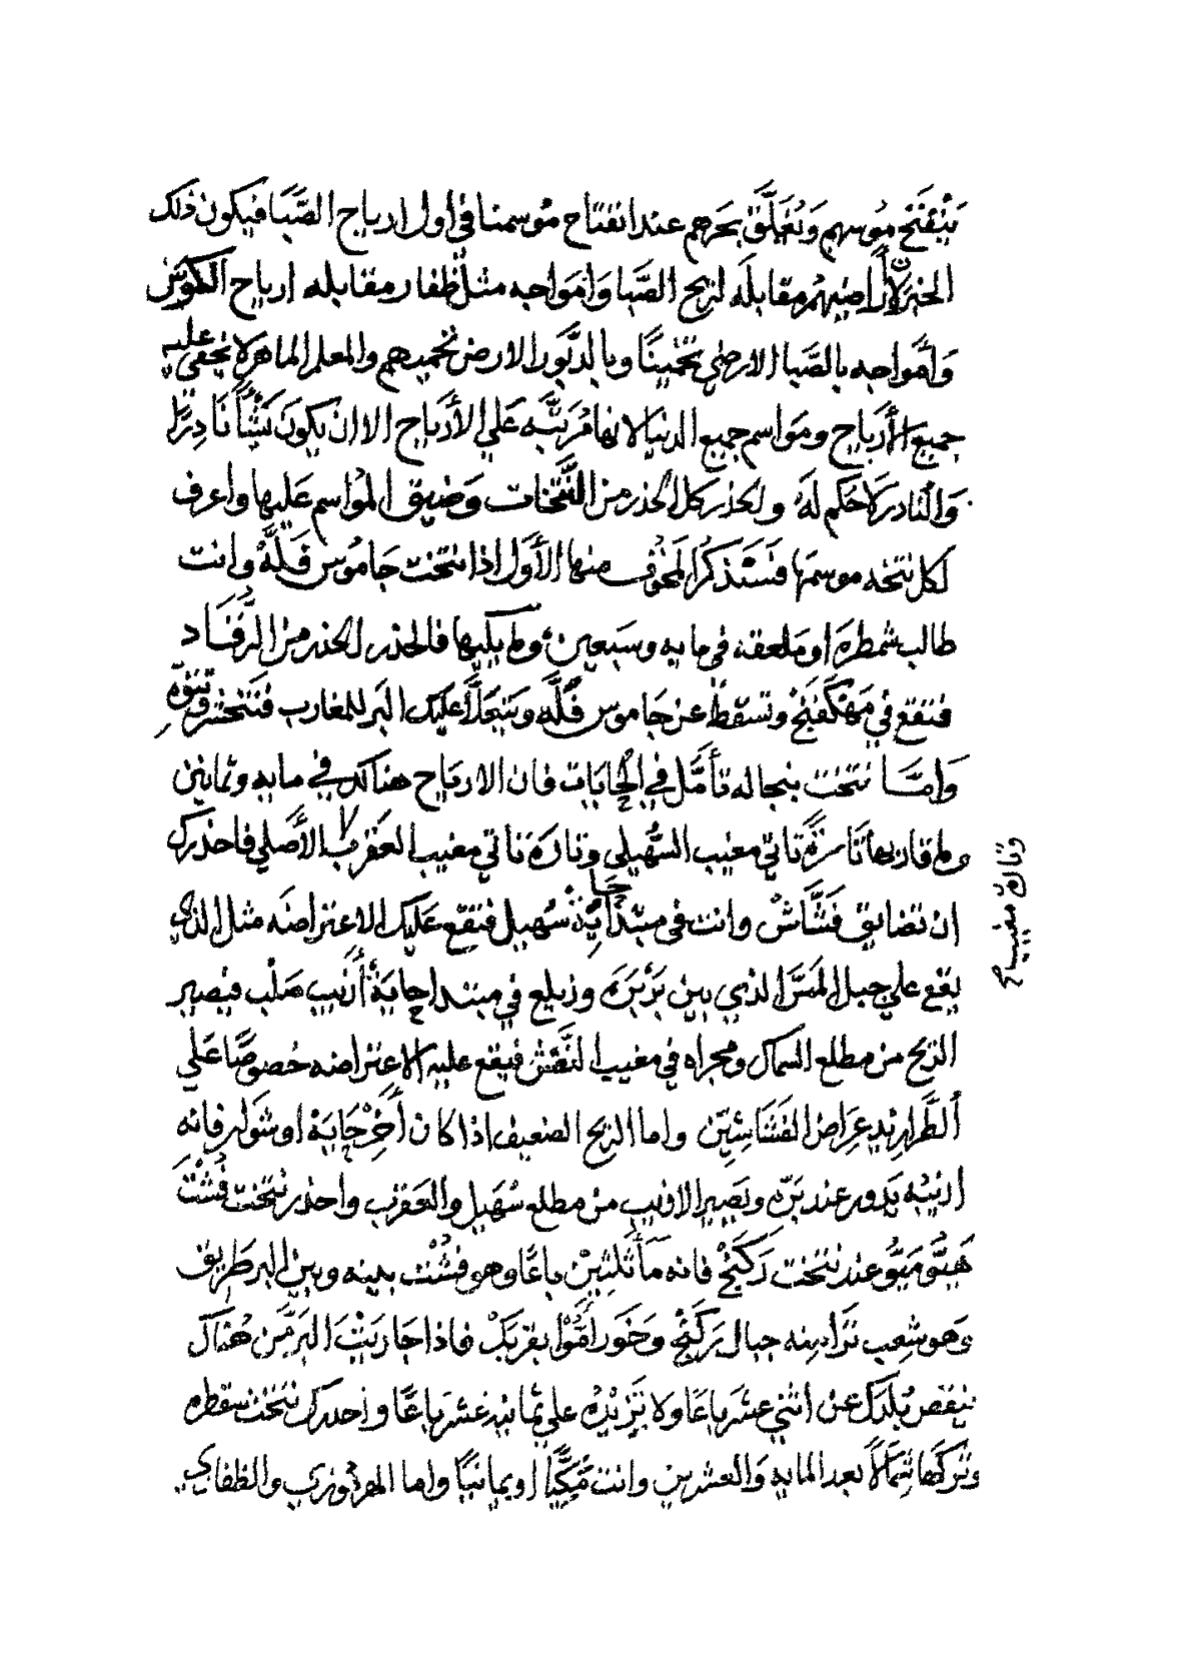 يَنْفَتِح مُوسهم وَيُغَلَّق بَحرَهم عند انفتاح مُوسمنا في اول ارياح الصَّبَا فيكون ذلك
الخبر لأن أراضيهم مقابلَه لريح الصَّبا وَامَواجه مثل ظفار مقابله ارياح الكوس
وَامَّواجه بالصَّبا الارضي تخمينًا وبالدَّبور الارض تحميهم والمعلم الماهر لا يخفى عليه
جميع الأَرياح ومَواسم جميع الدنيا لانها مُرَتَّبه عَلي الأَرياح الا ان يكونَ شَيْأً نَادِرًا
وَالنادر لا حَكم لَهُ والحذر كل الحذر من النَّتخات وَضيق المَواسم عَليها واعرف
لكل نتخه موسمَها فَسَنَذكُر المَخُوف منها الأَوَّل اذا نتخت جَامُوس فَلَّهْ وانت
طالب شمطرَه او ملعقه في مايه وسَبعين وما يليها فالحذر الحذر من الرَّفَّاد
فتقع في مَهْكَفَنْج وتسقط عن جَاموس فَلَّه ويَتَجلَّا عليك البَر للمغارب فتَنْتَخْه وتتوّه
وَامَّا نتخت بنجاله تأمَّل في الجايات فان الارياح هناك في مايه وثمانين
وما قاربها تَارَةً تاتي مغيب السُّهيلي وتارَه تاتي مغيب العَقرب الأَصلي فاحذرك
وتارة مغيب
ان تضايق فَشَّاش وانت في مبتدا جَايَة سُهيل فتقع عَليك الاعتراضَه مثل الذي
يقع علي جبل المَسَّ الذي بين بَرْبَرَه وزيلع في مبتدا جايَة أَزْيَب صَلْب فيصير
الريح من مطلع السماك ومجراه في مغيب النَّعش فيقع عليه الاعتراضه خصوصًا عَلي
الطَّراريد عِرَاض الفَشَاشِيّن واما الريح الضعيف اذا كان أَخِرْ جَايَة او شَوَار فانه
ازيَبْ يَدور عند بَرّه ويَصير الازيب من مطلع سُهَيل والعَقرب واحذر نتخت فُشْتْ
هَيُّومَيُّو عند نتخت رَكَنْج فانه مَا ثَلثِيْن باعًا وهو فُشْت بينه وبين البر طريق
وَهو شِعب تَرَا منه جبال رَكَنْج وَخَور امَّوْا بقربَكْ فاذا جَا رَيْتَ البَر من هُناك
ينقص بُلدَك عن اثني عشَر باعًا ولا تَزيدُه علي ثمانيةَ عشَر باعًا واحذرك نتخت سقطره
وتركَها شِمَالاً بعد المايه وَالعشرين وانت مَكِّيًا او يمانيًا واما الهرموزي والظفاري